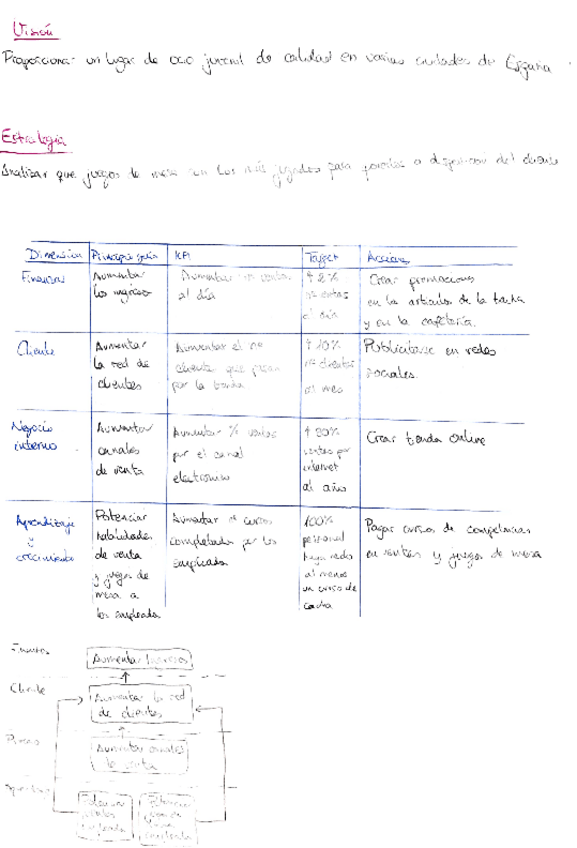 Visión
Proporcionar un lugar de ocio juvenil de calidad en varias ciudades de España
Estrategia
Analizar que juegos de mesa son los más jugados para ponerlos a disposición del cliente
Dimensión Principio guía KPI Target Acciones
Financiera Aumentar los ingresos Aumentar nº ventas al día ↑ 2% nº ventas al día Crear promociones en los artículos de la tienda y en la cafetería.
Cliente Aumentar la red de clientes Aumentar el nº clientes que pasan por la tienda ↑ 10% nº clientes al mes Publicitarse en redes sociales.
Negocio interno Aumentar canales de venta Aumentar % ventas por el canal electrónico ↑ 30% ventas por internet al año Crear tienda online
Aprendizaje y crecimiento Potenciar habilidades de venta y juegos de mesa a los empleados Aumentar nº cursos completados por los empleados 100% personal haya hecho al menos un curso de Pagar cursos de competencias en ventas y juegos de mesa
Aumentar Ingresos
Cliente
Aumentar la red
de clientes
Aumentar canales
de venta
Potenciar
ventas
empleados
Potenciar
juegos de
mesa
empleados